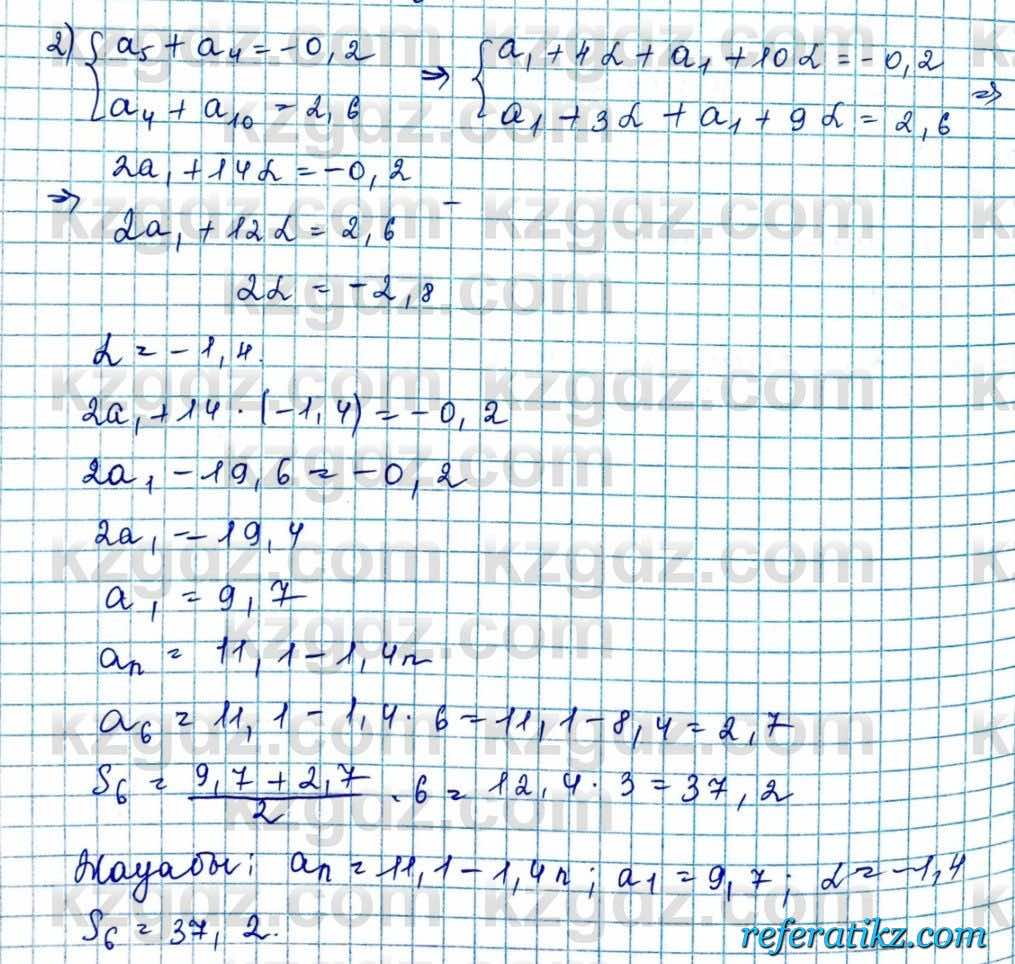 2) { a₅ + a₄ = -0,2 ⇒ { a₁ + 4d + a₁ + 10d = -0,2 ⇒
a₄ + a₁₀ = 2,6 a₁ + 3d + a₁ + 9d = 2,6
2a₁ + 14d = -0,2
⇒ -
2a₁ + 12d = 2,6
2d = -2,8
d = -1,4.
2a₁ + 14 · (-1,4) = -0,2
2a₁ - 19,6 = -0,2
2a₁ = 19,4
a₁ = 9,7
aₙ = 11,1 - 1,4n
a₆ = 11,1 - 1,4 · 6 = 11,1 - 8,4 = 2,7
S₆ = (9,7 + 2,7)/2 · 6 = 12,4 · 3 = 37,2
Жауабы: aₙ = 11,1 - 1,4n; a₁ = 9,7; d = -1,4
S₆ = 37,2.
kzgdz.com
referatikz.com